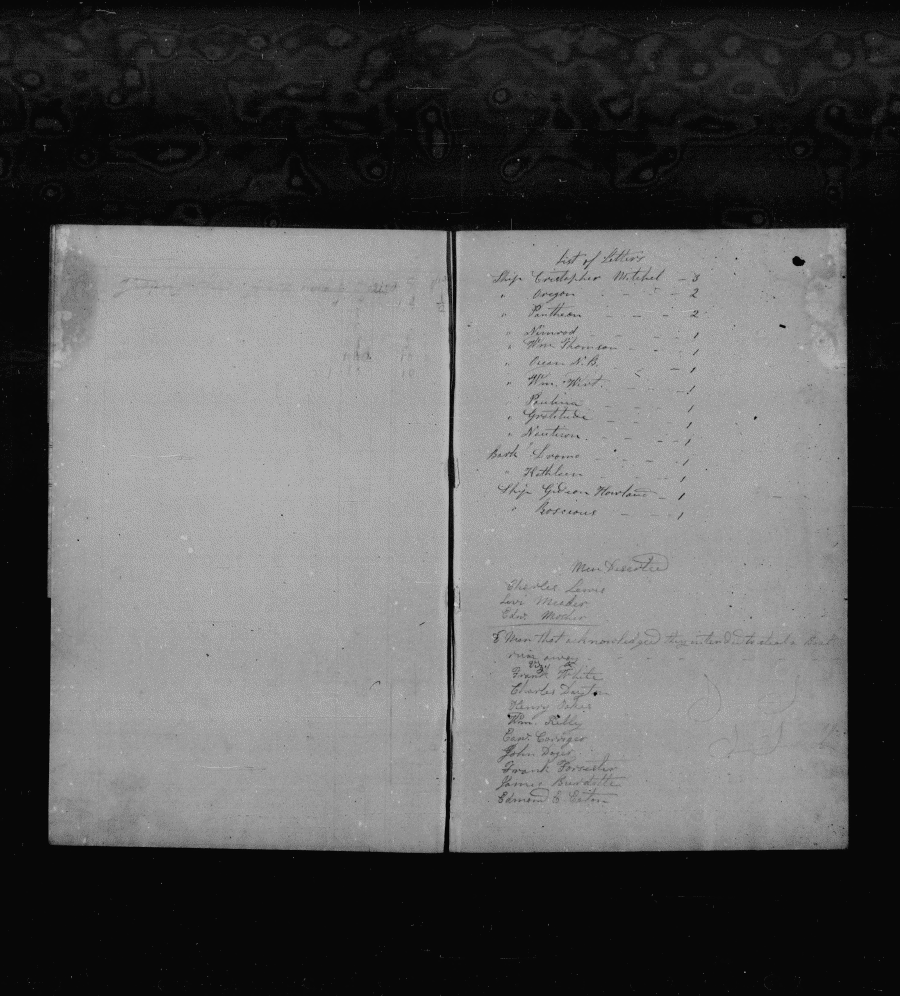 List of Letters
Ship Cristopher Mitchel - 3
" Oregon - - - 2
" Pantheon - - - 2
" Nimrod - - - 1
" Wm Thomson - - 1
" Ocean N.B. - - 1
" Wm. Wirt. - - 1
Paulina - - - 1
" Gratitude - - - 1
" Nauticon. - - - 1
Bark Dromo - - - 1
" Kathleen - - 1
Ship Gideon Howland - 1
" Roscious - - 1
Men Deserted
Charles Lewis
Levi Meeder
Edw. Mosher
Men that acknowledged they intended to steal a Boat
run away
Frank White
Charles Dayton
Henry
Wm. Rilly
Edw. Corriger
John
Frank Forrester
James Burdette
Edmond E. Eaton